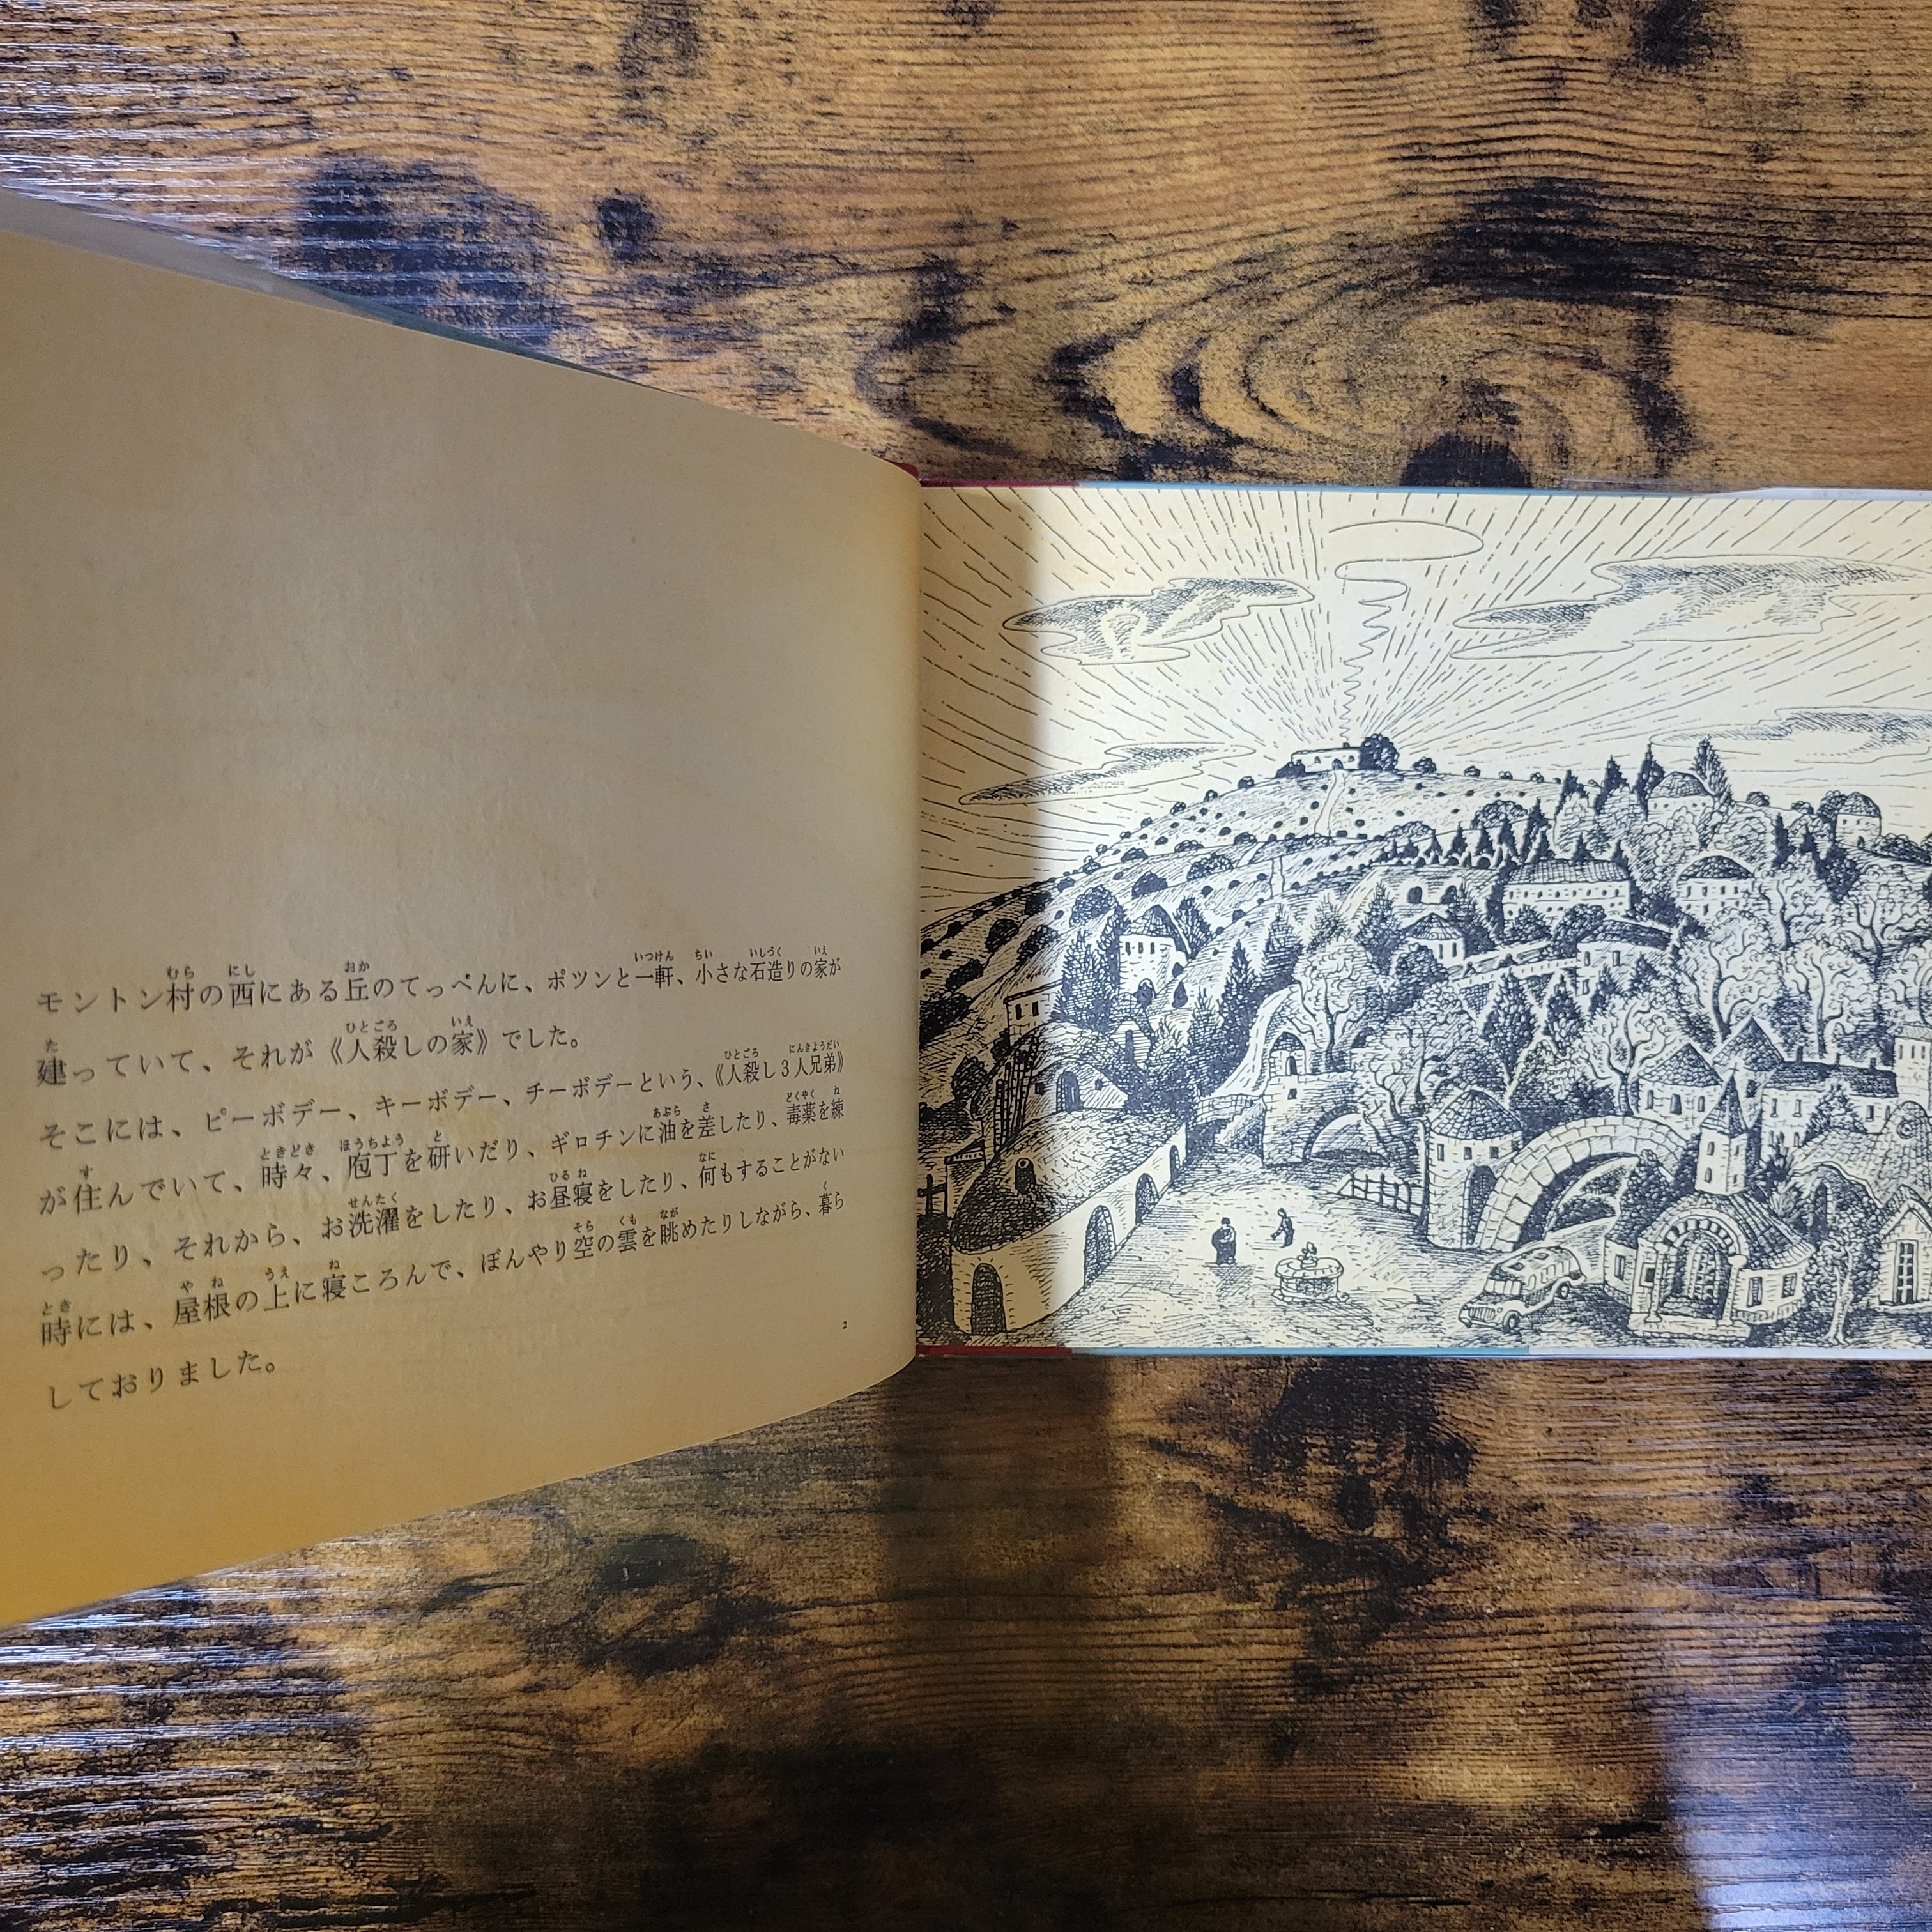 モントン村の西にある丘のてっぺんに、ポツンと一軒、小さな石造りの家が
建っていて、それが《人殺しの家》でした。
そこには、ピーボデー、キーボデー、チーボデーという、《人殺し3人兄弟》
が住んでいて、時々、庖丁を研いだり、ギロチンに油を差したり、毒薬を練
ったり、それから、お洗濯をしたり、お昼寝をしたり、何もすることがない
時には、屋根の上に寝ころんで、ぼんやり空の雲を眺めたりしながら、暮ら
しておりました。
2